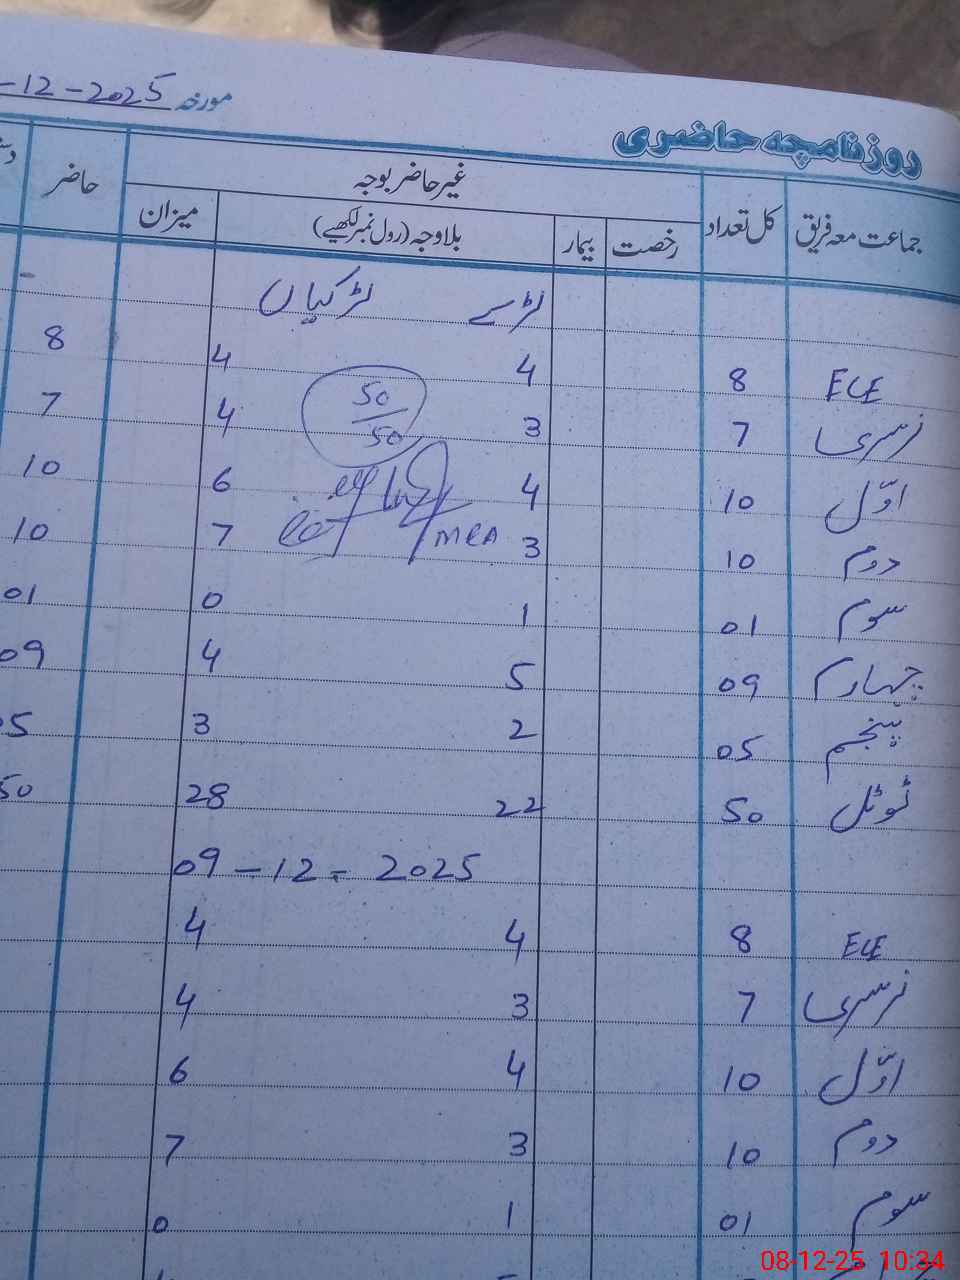 مورخہ -12-2025
روزنامچہ حاضری
جماعت معہ فریق کل تعداد غیر حاضر بوجہ حاضر
رخصت بیمار بلاوجہ (رول نمبر لکھیے) میزان
لڑکے لڑکیاں
ECE 8 4 4 8
نرسری 7 3 4 7
50
50
اوّل 10 4 6 10
دوم 10 3 7 10
MEA
سوم 01 1 0 01
چہارم 09 5 4 09
پنجم 05 2 3 05
ٹوٹل 50 22 28 50
09-12-2025
ECE 8 4 4
نرسری 7 3 4
اوّل 10 4 6
دوم 10 3 7
سوم 01 1 0
08-12-25 10:34